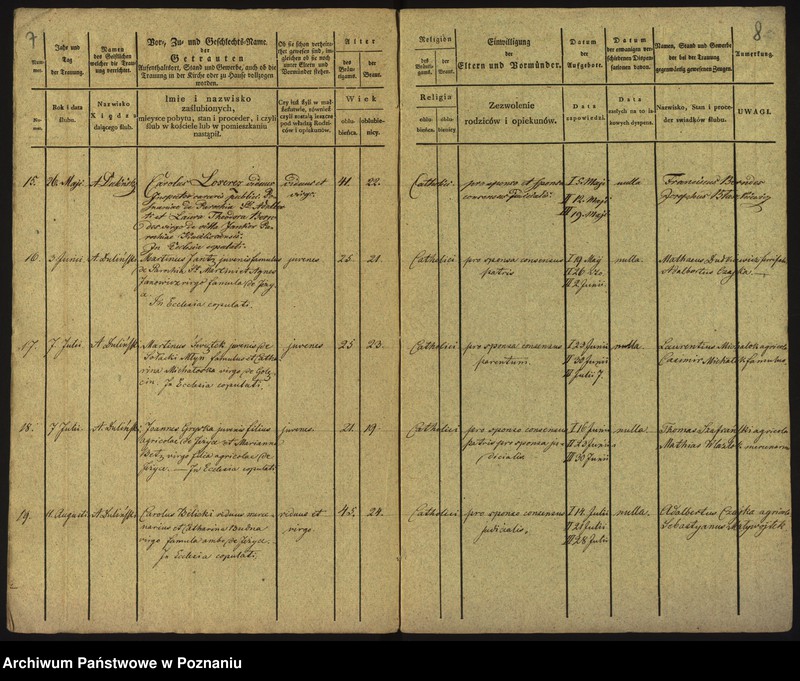 7
8
Num-
mer.
Jahr und
Tag
der Trauung.
Namen
des Geistlichen
welcher die Trau-
ung verrichtet.
Vor-, Zu- und Geschlechts-Name.
der
Getrauten
Aufenthaltsort, Stand und Gewerbe, auch ob die
Trauung in der Kirche oder zu Hause vollzogen
worden.
Ob sie schon verheira-
thet gewesen sind, im-
gleichen ob sie noch
unter Eltern und
Vormünder stehen.
Alter
des
Bräu-
tigams.
der
Braut.
Religion
des
Bräuti-
gams.
der
Braut.
Einwilligung
der
Eltern und Vormünder.
Datum
der
Aufgebote.
Datum
der etwanigen ver-
schiedenen Dispen-
sationen davon.
Namen, Stand und Gewerbe
der bei der Trauung
gegenwärtig gewesenen Zeugen.
Anmerkung.
Nu-
mer.
Rok i data
ślubu.
Nazwisko
Xiędza
dającego ślub.
Imie i nazwisko
zaślubionych,
mieysce pobytu, stan i proceder, i czyli
ślub w kościele lub w pomieszkaniu
nastąpił.
Czy iuż byli w mał-
żeństwie, również
czyli zostaią ieszcze
pod władzą Rodzi-
ców i opiekunów.
Wiek
oblu-
bieńca.
oblubie-
nicy.
Religia
oblu-
bieńca.
oblu-
bienicy
Zezwolenie
rodziców i opiekunów.
Data
zapowiedzi.
Data
Nazwisko, Stan i proce-
der świadków ślubu.
UWAGI.
15. 26 Maji
Carolus
viduus
viduus et
virgo.
41. 22.
Catholici
pro sponso et sponsa
consensus judicialis
I 5. Maji
II 12. Maji
III 19. Maji
nulla
Franciscus
Josephus
virgo de villa
In Ecclesia copulati.
16. 3 Junii A. Duliński
Martinus Jantz juvenis famulus
de Parochia St Martini et Agnes
virgo famula de
In Ecclesia copulati
juvenes
25. 21.
Catholici
pro sponsa consensus
patris
I 19 Maji
II 26
III 2 Junii.
nulla.
Mathaeus
Adalbertus Czajka
17. 7 Julii A. Duliński
Martinus juvenis de
Młyn famulus et Catha-
rina Michaloska virgo de
In Ecclesia copulati.
juvenes
25 23.
Catholici
pro sponsa consensus
parentum.
I 23 Junii
II 30 Junii
III Julii 7.
nulla
Laurentius agricola
Casimir famulus
18. 7 Julii A. Duliński
Joannes juvenis filius
agricolae de Jeżyce et Marianna
virgo filia agricolae de
Jeżyce. — In Ecclesia copulati
juvenes
21. 19
Catholici
pro sponso consensus
patris pro sponsa ju-
dicialis
I 16 Junii
II 23 Junii
III 30 Junii
nulla.
Thomas agricola
Mathias mercenarius
19. 11. Augusti A. Duliński
Carolus viduus merce-
narius et Catharina Budna
virgo famula ambo de Jeżyce.
In Ecclesia copulati.
viduus et
virgo
45. 24.
Catholici
pro sponso consensus
judicialis.
I 14. Julii
II 21 Julii
III 28 Julii
nulla.
Adalbertus Czajka agricola
Sebastyanus
Archiwum Państwowe w Poznaniu